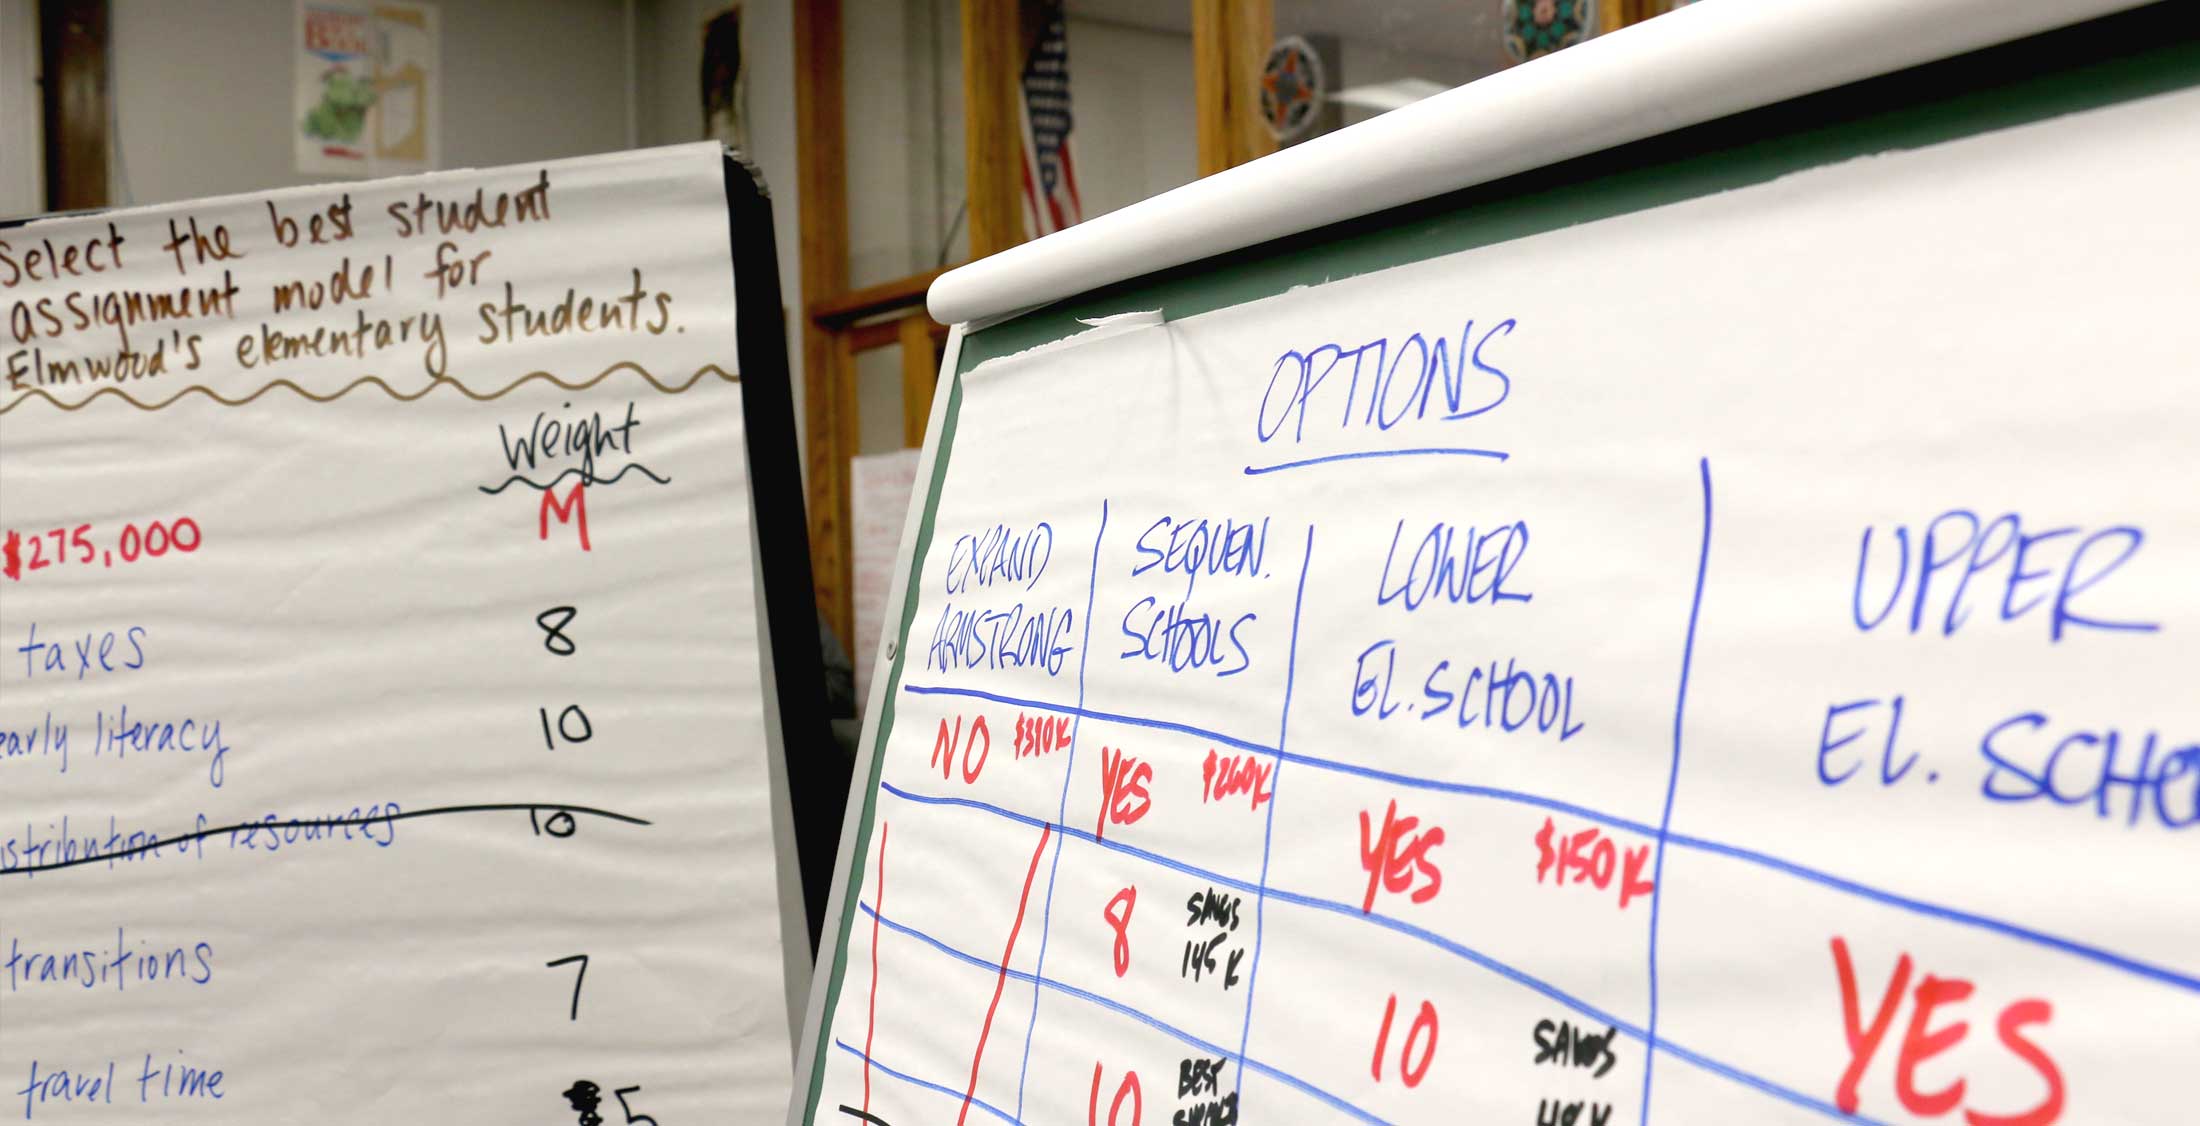 Select the best student
assignment model for
Elmwood's elementary students.
Weight
$275,000 M
taxes 8
early literacy 10
distribution of resources 10
transitions 7
travel time 5
OPTIONS
EXPAND
ARMSTRONG
SEQUEN.
SCHOOLS
LOWER
EL. SCHOOL
UPPER
EL. SCHO
NO $310K
YES $260K
YES $150K
YES
8 SAVES
145 K
10 SAVES
10 BEST